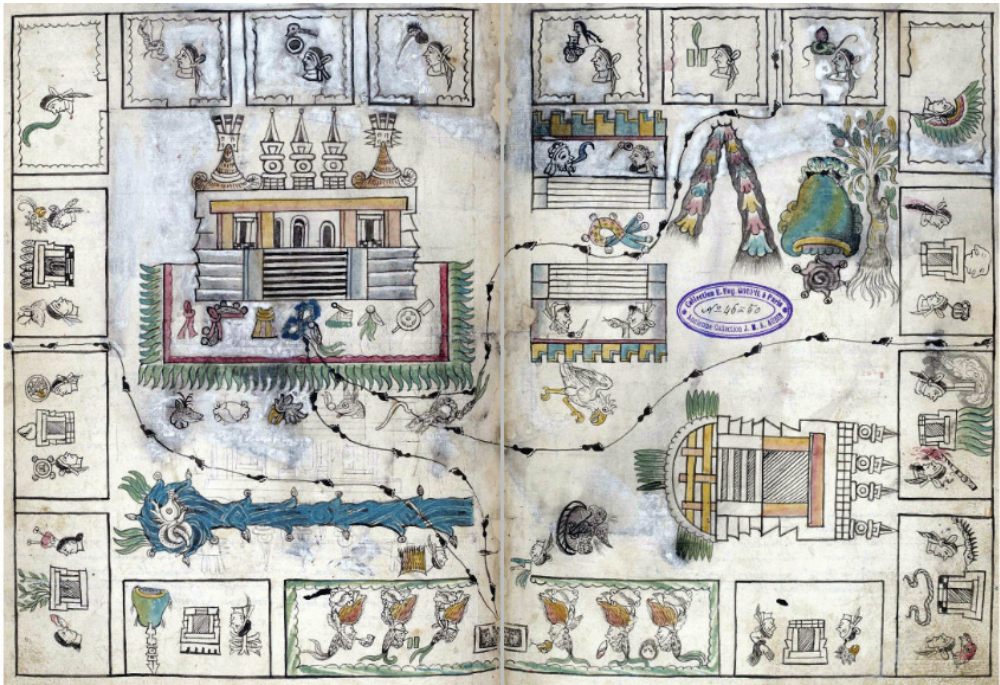 Collection E. Eug. GOUPIL à Paris
Nº 46 50
Ancienne Collection J. M. A. AUBIN